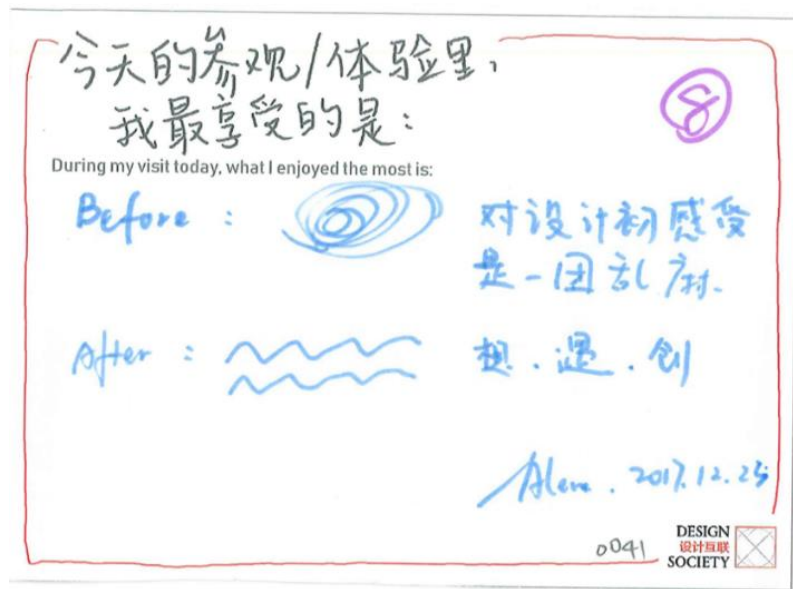 今天的参观/体验里,
我最享受的是:
⑧
During my visit today, what I enjoyed the most is:
Before :
对设计初感受
是一团乱麻.
After :
想.遇.创
2017.12.23
0041
DESIGN
设计互联
SOCIETY